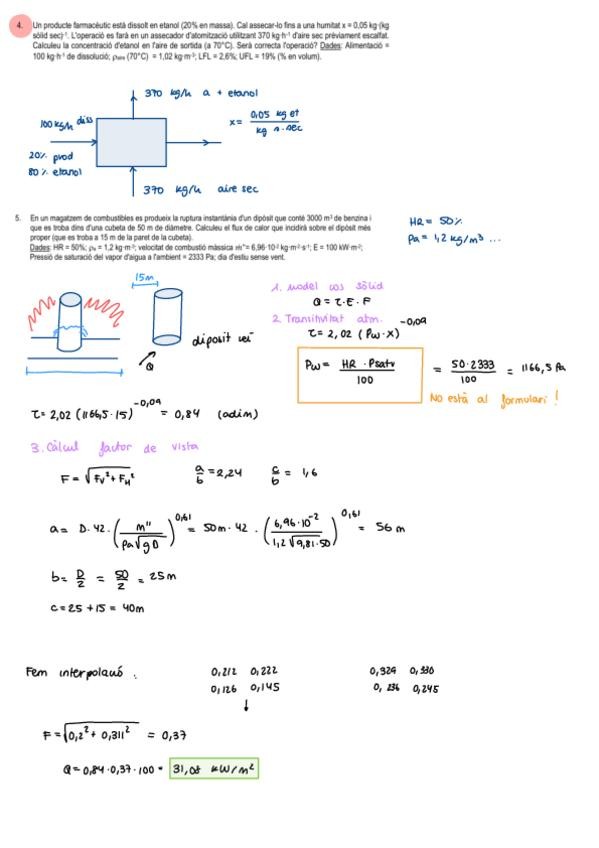 4. Un producte farmacèutic està dissolt en etanol (20% en massa). Cal assecar-lo fins a una humitat x = 0,05 kg·(kg
sòlid sec)⁻¹. L'operació es farà en un assecador d'atomització utilitzant 370 kg·h⁻¹ d'aire sec prèviament escalfat.
Calculeu la concentració d'etanol en l'aire de sortida (a 70°C). Serà correcta l'operació? Dades: Alimentació =
100 kg·h⁻¹ de dissolució; ρaire (70°C) = 1,02 kg·m⁻³; LFL = 2,6%; UFL = 19% (% en volum).
370 kg/h a + etanol
100kg/h diss
x = 0,05 kg et / kg s.sec
20% prod
80% etanol
370 kg/h aire sec
5. En un magatzem de combustibles es produeix la ruptura instantània d'un dipòsit que conté 3000 m³ de benzina i
que es troba dins d'una cubeta de 50 m de diàmetre. Calculeu el flux de calor que incidirà sobre el dipòsit més
proper (que es troba a 15 m de la paret de la cubeta).
Dades: HR = 50%; ρa = 1,2 kg·m⁻³; velocitat de combustió màssica m"= 6,96·10⁻² kg·m⁻²·s⁻¹; E = 100 kW·m⁻²;
Pressió de saturació del vapor d'aigua a l'ambient = 2333 Pa; dia d'estiu sense vent.
HR = 50%
ρa = 1,2 kg/m³ ...
15m
dipòsit veí
Q
1. model cos sòlid
Q = τ·E·F
2. Transmivitat atm.
τ = 2,02 (Pw·x)^-0,09
Pw = HR · Psatv / 100 = 50·2333 / 100 = 1166,5 Pa
No està al formulari!
τ = 2,02 (1166,5·15)^-0,09 = 0,84 (adim)
3. Càlcul factor de vista
F = √Fv² + FH²
a/b = 2,24
c/b = 1,6
a = D·42·(m" / ρa√gD)^0,61 = 50m·42·(6,96·10⁻² / 1,2√9,81·50)^0,61 = 56 m
b = D/2 = 50/2 = 25m
c = 25 + 15 = 40m
Fem interpolació:
0,212 0,222
0,126 0,145
0,324 0,330
0,236 0,245
F = √0,2² + 0,311² = 0,37
Q = 0,84·0,37·100 = 31,08 kW/m²